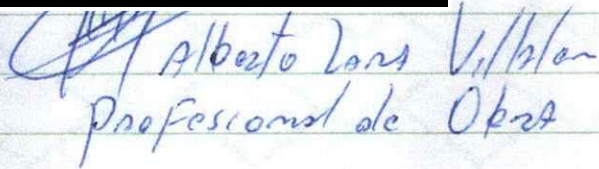 Alberto Lara Villalon
Profesional de Obra